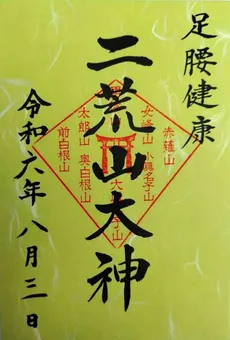 足腰健康
二荒山大神
令和六年八月三日
赤薙山
女峰山
小真名子山
太郎山
奥白根山
前白根山